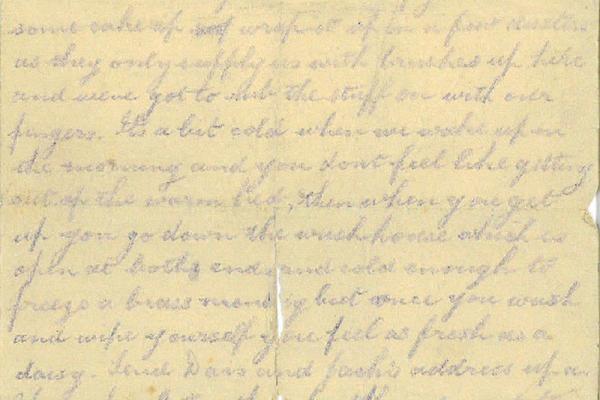 some cake up and wrap it up in a few dusters
as they only supply us with brushes up here
and weve got to rub the stuff on with our
fingers. Its a bit cold when we wake up in
the morning and you dont feel like getting
out of the warm bed, then when you get
up you go down the wash house which is
open at both ends and cold enough to
freeze a brass monkey but once you wash
and wipe yourself you feel as fresh as a
daisy. Send Dans and Jack's address up a